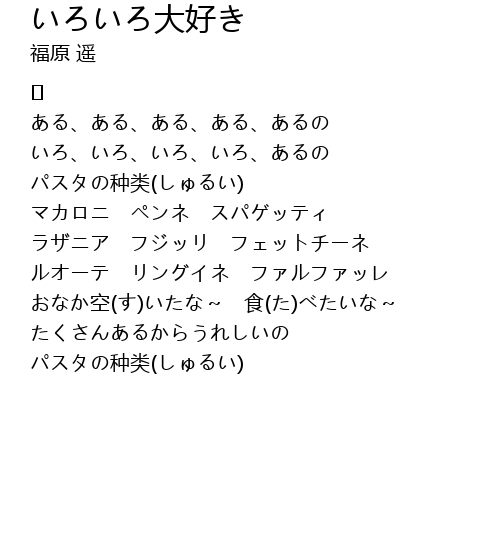 いろいろ大好き
福原 遥
ある、ある、ある、ある、あるの
いろ、いろ、いろ、いろ、あるの
パスタの种类(しゅるい)
マカロニ　ペンネ　スパゲッティ
ラザニア　フジッリ　フェットチーネ
ルオーテ　リングイネ　ファルファッレ
おなか空(す)いたな～　食(た)べたいな～
たくさんあるからうれしいの
パスタの种类(しゅるい)